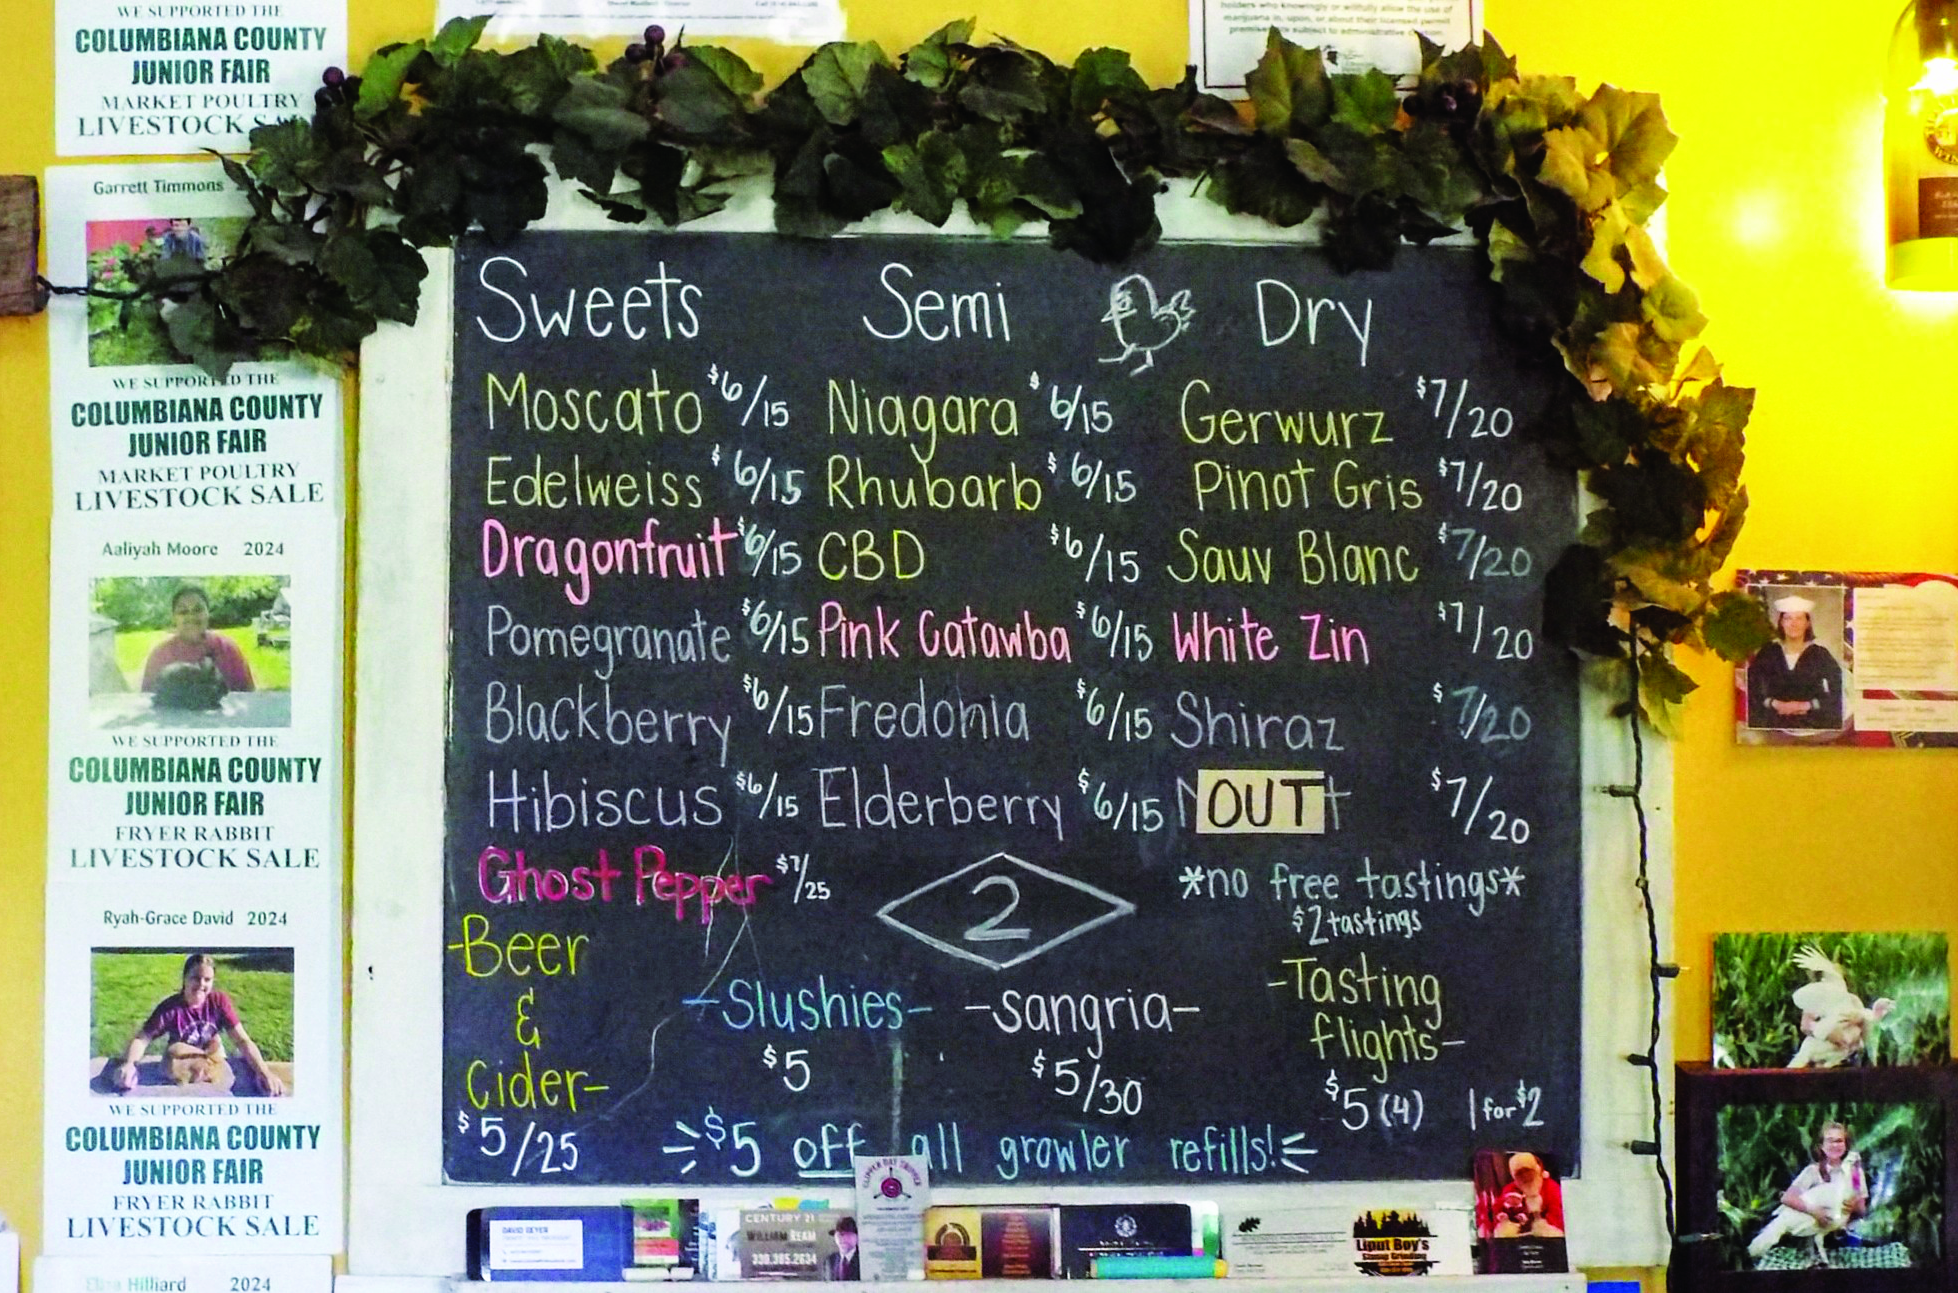 WE SUPPORTED THE
COLUMBIANA COUNTY
JUNIOR FAIR
MARKET POULTRY
LIVESTOCK
Garrett Timmons
WE SUPPORTED THE
COLUMBIANA COUNTY
JUNIOR FAIR
MARKET POULTRY
LIVESTOCK SALE
Aaliyah Moore 2024
WE SUPPORTED THE
COLUMBIANA COUNTY
JUNIOR FAIR
FRYER RABBIT
LIVESTOCK SALE
Ryah-Grace David 2024
WE SUPPORTED THE
COLUMBIANA COUNTY
JUNIOR FAIR
FRYER RABBIT
LIVESTOCK SALE
Hilliard 2024
holders who knowingly or willfully allow the use of
marijuana in, upon, or about their licensed permit
premises is subject to administrative
Sweets
Moscato $6/15
Edelweiss $6/15
Dragonfruit $6/15
Pomegranate $6/15
Blackberry $6/15
Hibiscus $6/15
Ghost Pepper $7/25
Semi
Niagara $6/15
Rhubarb $6/15
CBD $6/15
Pink Catawba $6/15
Fredonia $6/15
Elderberry $6/15
Dry
Gerwurz $7/20
Pinot Gris $7/20
Sauv Blanc $7/20
White Zin $7/20
Shiraz $7/20
OUT $7/20
2
*no free tastings*
$2 tastings
-Beer
&
Cider-
$5/25
-Slushies-
$5
-Sangria-
$5/30
-Tasting
flights-
$5 (4) 1 for $2
$5 off all growler refills!
CENTURY 21
WILLIAM REAM
330.385.2634
Liput Boy's